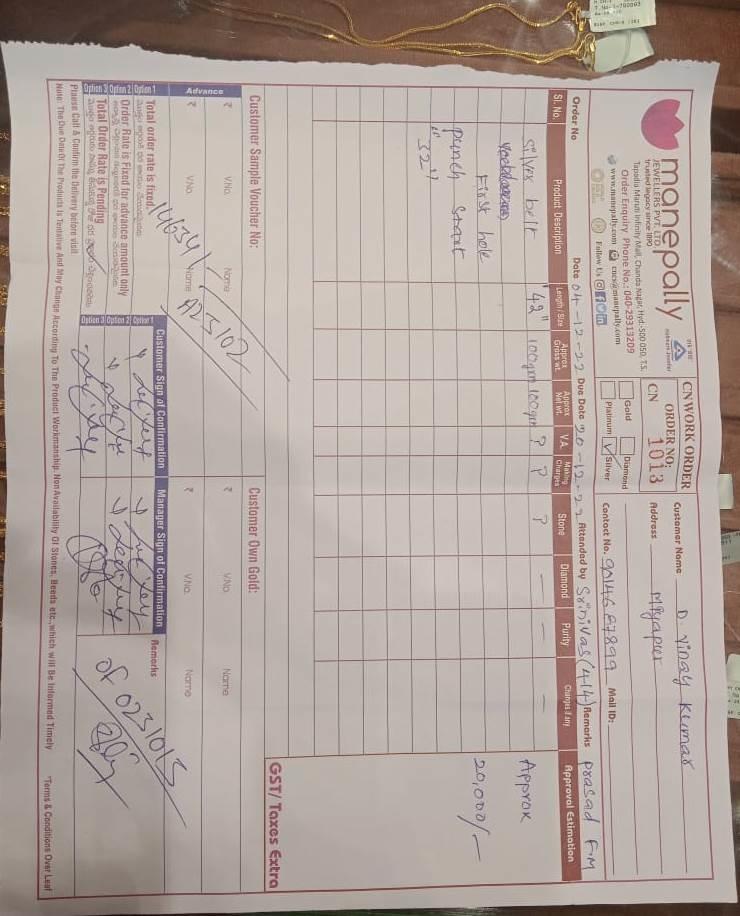 manepally
JEWELLERS PVT. LTD.
trusted legacy since 1890
Tapadia Maruti Infinity Mall, Chanda Nagar, Hyd.-500 050, T.S.
Order Enquiry Phone No.: 040-29313209
www.manepally.com
Follow Us
CN WORK ORDER
ORDER NO:
CN 1013
Gold Diamond
Platinum Silver
Customer Name D. Vinay Kumar
Address
Contact No. 9014687899 Mail ID:
Order No Date 04-12-22 Due Date 20-12-22 Attended by Srinivas (414) Remarks prasad F.M
Sl. No. Product Description Length / Size Approx Gross wt. Approx Net wt. V.A. Making Charges Stone Diamond Purity Charges if any Approval Estimation
Silver belt "42" 100gm 100gm ? ? ? — — — Approx
First hole
punch start 20,000/-
"32"
GST/Taxes Extra
Customer Sample Voucher No: Customer Own Gold:
₹ V.No. Name ₹ V.No. Name
Advance
₹ V.No. Name ₹ V.No. Name
14634/-
A23102
Option 1 Total order rate is fixed
Option 2 Order Rate is Fixed for advance amount only
Option 3 Total Order Rate is Pending
Customer Sign of Confirmation Manager Sign of Confirmation Remarks
Option 1
Option 2
Option 3
of 0231013
Please Call & Confirm the Delivery before visit
Note: The Due Date Of The Products Is Tentative And May Change According To The Product Workmanship, Non Availability Of Stones, Beeds etc.,which will Be Informed Timely *Terms & Conditions Over Leaf